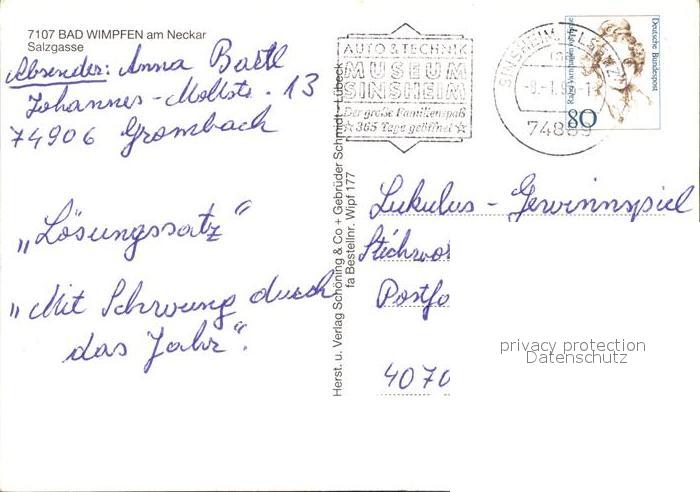 7107 BAD WIMPFEN am Neckar
Salzgasse
Absender: Anna Bartl
Johannes-Moltstr. 13
74906 Grombach
„Lösungssatz“
„Mit Schwung durch
das Jahr“.
Herst. u. Verlag Schöning & Co + Gebrüder Schmidt - Lübeck
fa Bestellnr. Wipf 177
AUTO & TECHNIK
MUSEUM
SINSHEIM
Der große Familienspaß
☆ 365 Tage geöffnet ☆
SINSHEIM, ELSENZ
74889
Deutsche Bundespost
80
Lukulus - Gewinnspiel
Stichwor
Postfa
4070
privacy protection
Datenschutz